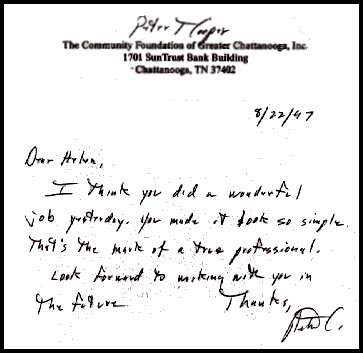 Peter T Cooper
The Community Foundation of Greater Chattanooga, Inc.
1701 SunTrust Bank Building
Chattanooga, TN 37402
8/22/97
Dear Helen,
I think you did a wonderful
job yesterday. You made it look so simple
That's the mark of a true professional.
Look forward to working with you in
the future
Thanks,
Pete C.